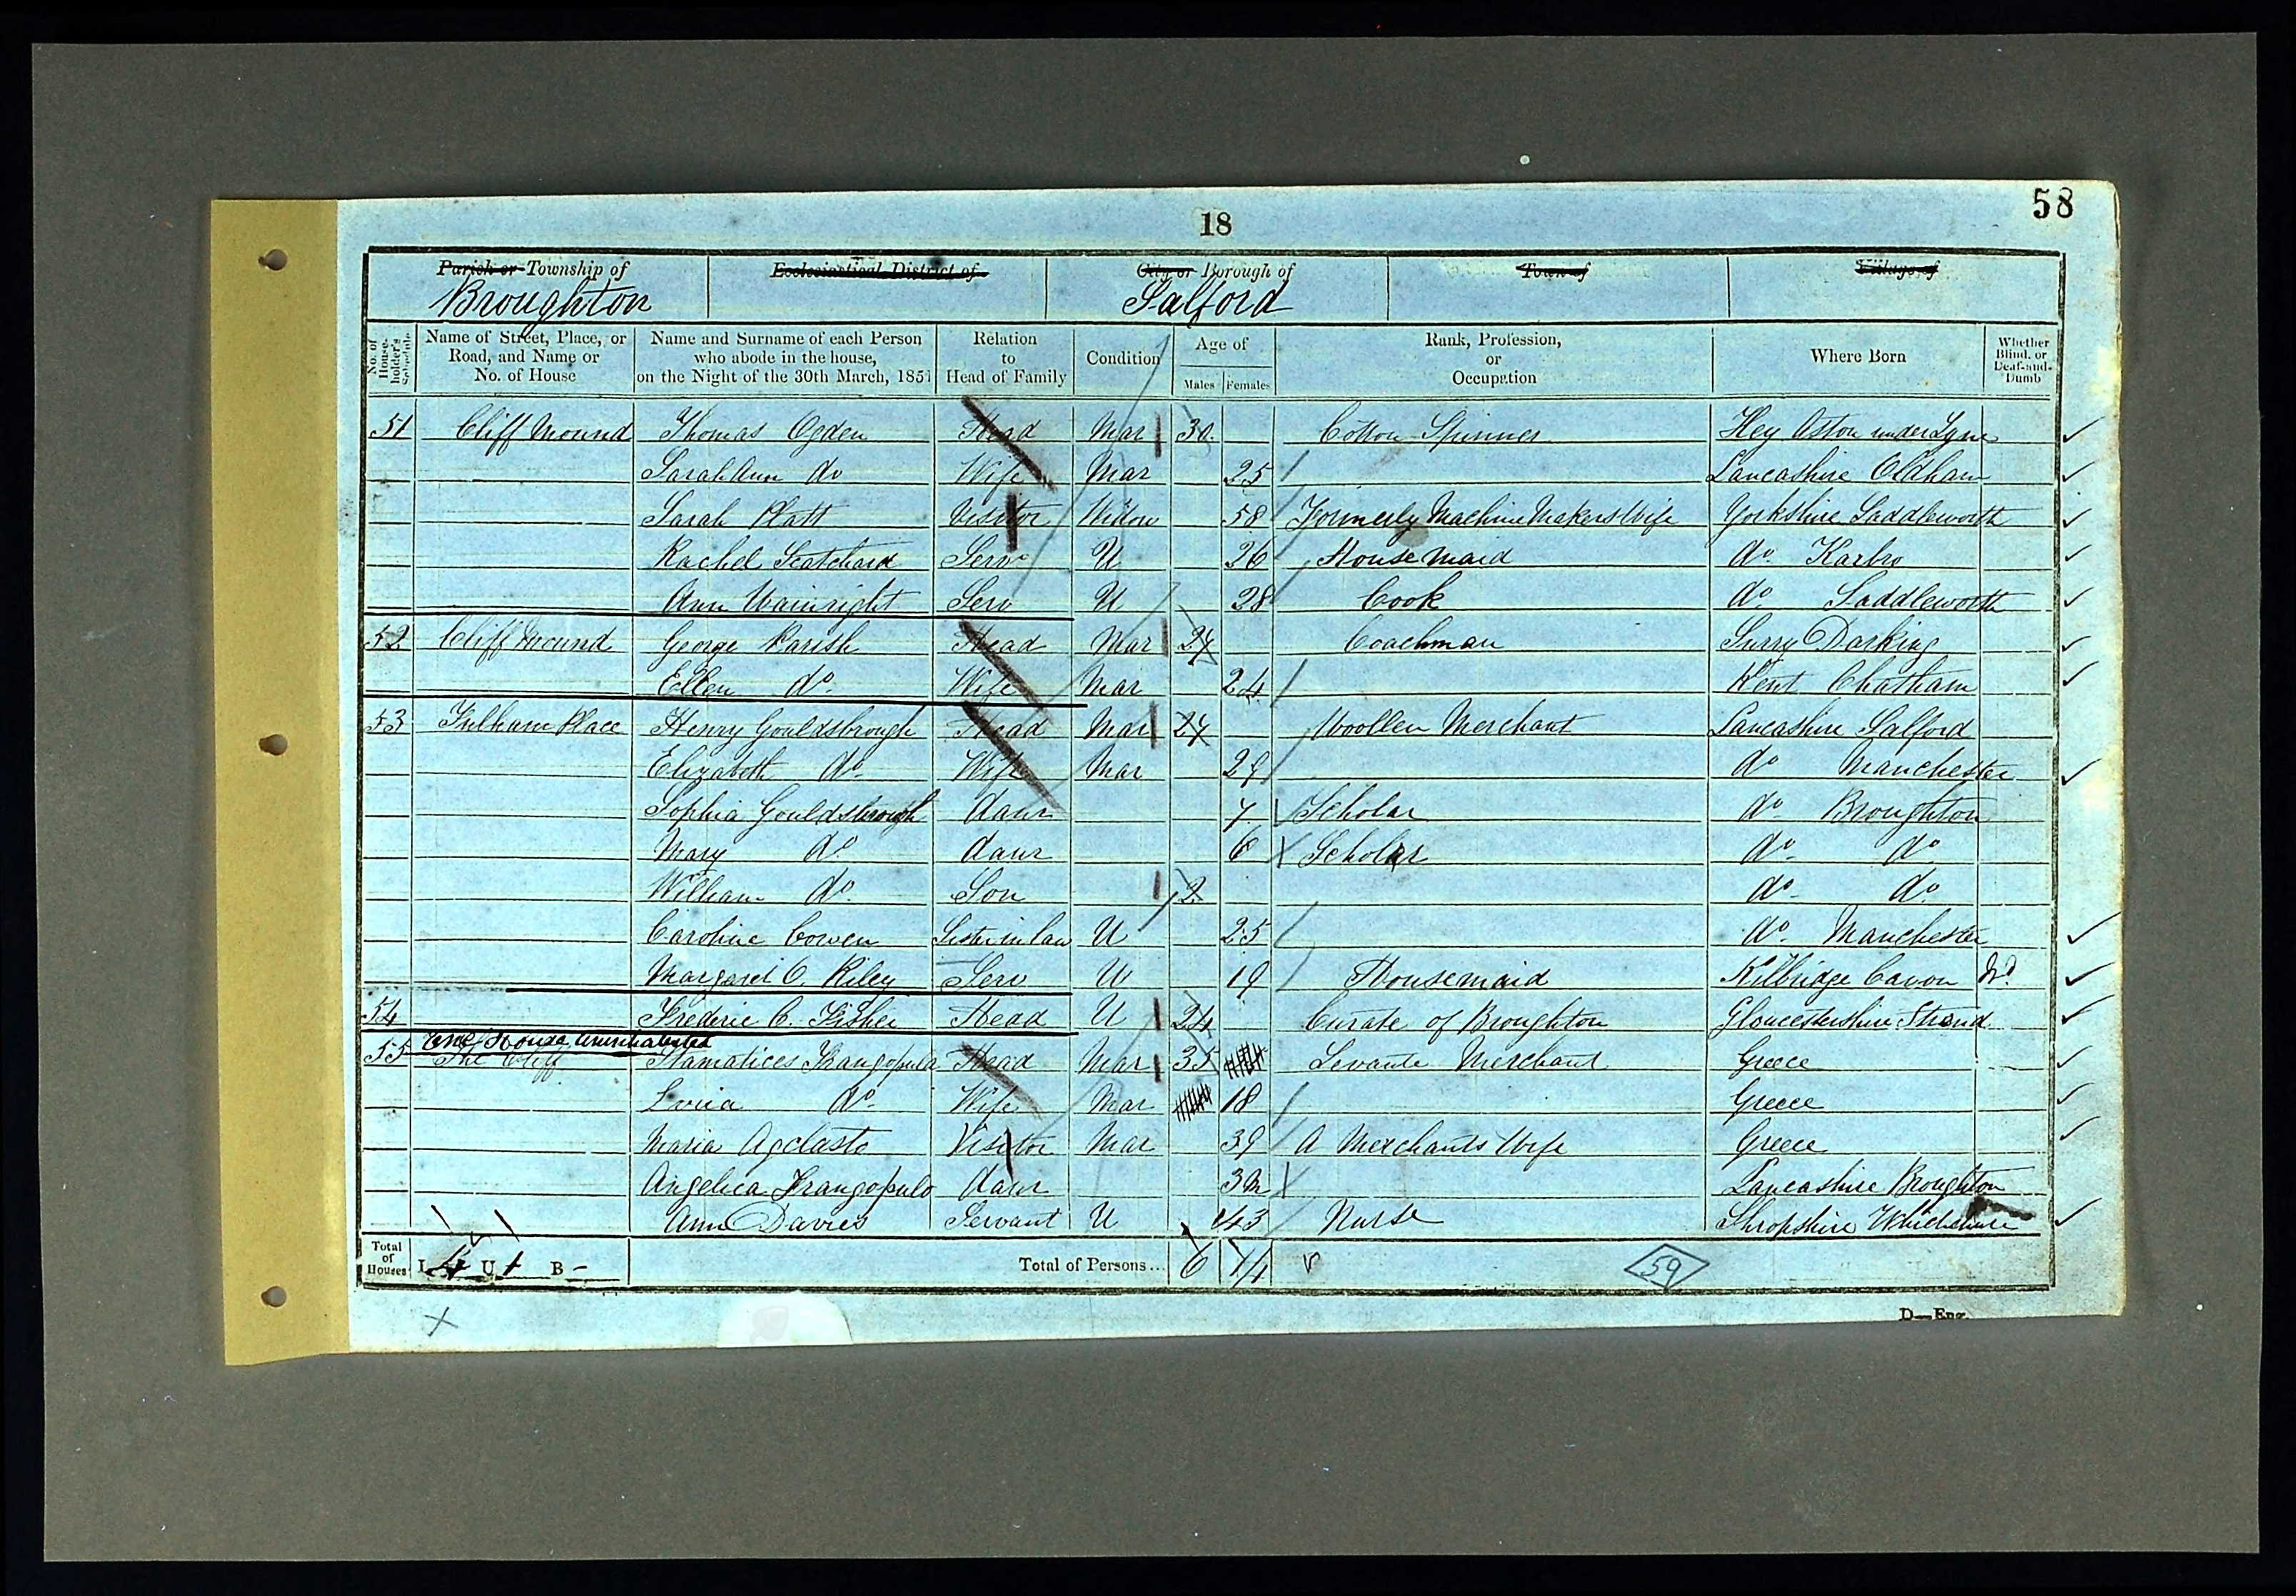 58
18
Parish or Township of Ecclesiastical District of City or Borough of Town of Village of
Broughton Salford
No. of House-holder's Schedule Name of Street, Place, or Road, and Name or No. of House Name and Surname of each Person who abode in the house, on the Night of the 30th March, 1851 Relation to Head of Family Condition Age of Males Females Rank, Profession, or Occupation Where Born Whether Blind, or Deaf-and-Dumb
51 Cliff Mound Thomas Ogden Head Mar 30 Cotton Spinner Hey Aston under Lyne
Sarah Ann do Wife Mar 25 Lancashire Oldham
Sarah Platt Visitor Widow 58 Formerly Machine Makers Wife Yorkshire Saddleworth
Rachel Scatchard Serv U 26 House Maid do
Ann Wainright Serv U 28 Cook do Saddleworth
52 Cliff Mound George Parish Head Mar 24 Coachman Surry Darking
Ellen do Wife Mar 24 Kent Chatham
53 Fulham Place Henry Gouldsbrough Head Mar Woollen Merchant Lancashire Salford
Elizabeth do Wife Mar 29 do Manchester
Sophia Gouldsbrough daur 7 Scholar do Broughton
Mary do daur 6 Scholar do do
William do Son 2 do do
Caroline Cowen Sister in law U 25 do Manchester
Margaret C. Riley Serv U 19 Housemaid Kilbridge Cavon
54 Frederic C. Fisher Head U 24 Curate of Broughton Gloucestershire Strond
One House Uninhabited
55 The Cliff Stamatices Frangopulo Head Mar 35 Levante Merchant Greece
do Wife Mar 18 Greece
Maria Agelasto Visitor Mar 39 A Merchants Wife Greece
Angelica Frangopulo daur 3 m Lancashire Broughton
Ann Davies Servant U 43 Nurse Shropshire
Total of Houses I 4 U 1 B - Total of Persons... 6 14 59
D—Eng.